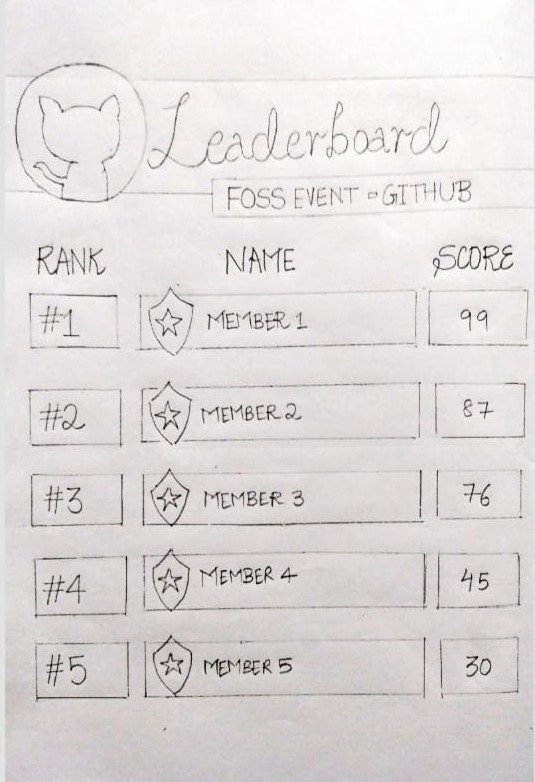 Leaderboard
FOSS EVENT - GITHUB
RANK NAME SCORE
#1 MEMBER 1 99
#2 MEMBER 2 87
#3 MEMBER 3 76
#4 MEMBER 4 45
#5 MEMBER 5 30